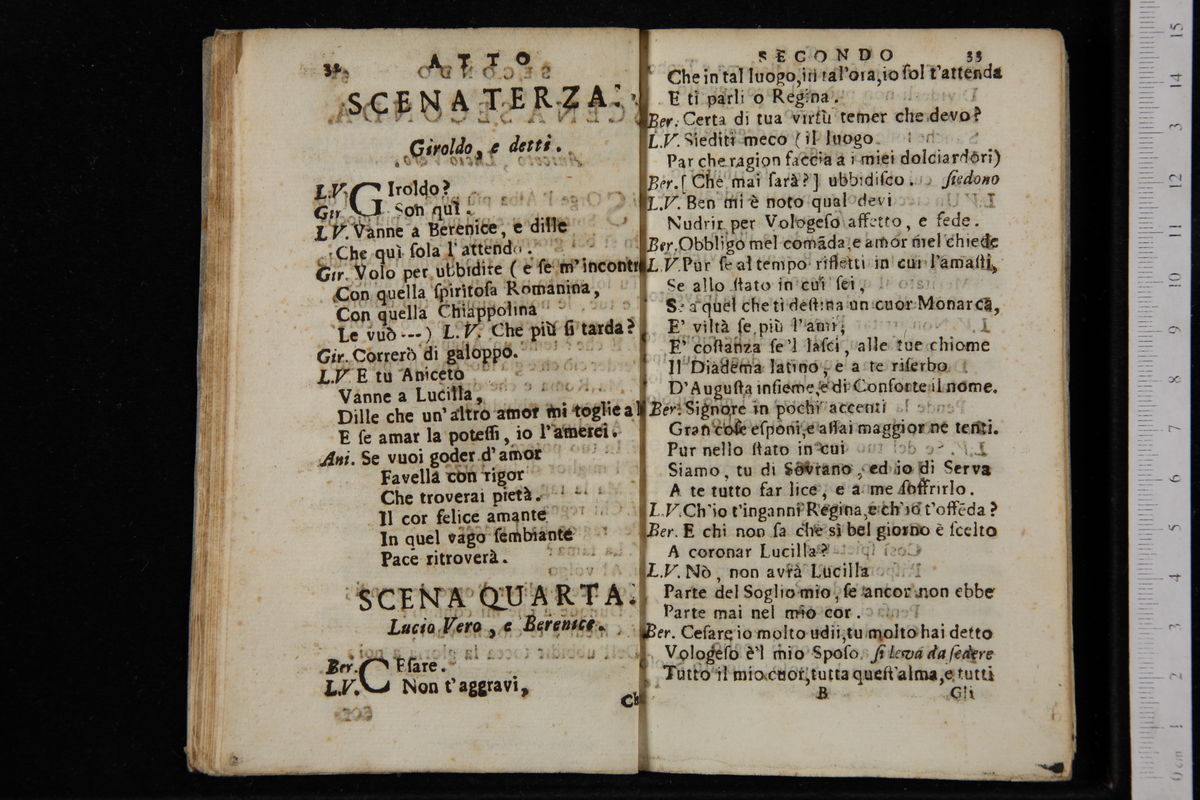 32 ATTO
SCENA TERZA.
Giroldo, e detti.
L.V. GIroldo?
Gir. Son quì.
L.V. Vanne a Berenice, e dille
Che quì sola l'attendo.
Gir. Volo per ubbidire (e se m'incontr
Con quella spiritosa Romanina,
Con quella Chiappolina
Le vuò ---) L.V. Che più si tarda?
Gir. Correrò di galoppo.
L.V. E tu Aniceto
Vanne a Lucilla,
Dille che un'altro amor mi toglie al
E se amar la potessi, io l'amerei.
Ani. Se vuoi goder d'amor
Favella con rigor
Che troverai pietà.
Il cor felice amante
In quel vago sembiante
Pace ritroverà.
SCENA QUARTA.
Lucio Vero, e Berenice.
Ber. CEsare.
L.V. Non t'aggravi,
Ch
SECONDO 33
Che in tal luogo, in tal'ora, io sol t'attenda
E ti parli o Regina.
Ber. Certa di tua virtù temer che devo?
L.V. Siediti meco (il luogo
Par che ragion faccia a i miei dolci ardori)
Ber. [Che mai sarà?] ubbidisco. siedono
L.V. Ben mi è noto qual devi
Nudrir per Vologeso affetto, e fede.
Ber. Obbligo mel comãda, e amor mel chiede
L.V. Pur se al tempo rifletti in cui l'amasti,
Se allo stato in cui sei,
Se a quel che ti destina un cuor Monarca,
E' viltà se più l'ami,
E' costanza se'l lasci, alle tue chiome
Il Diadema latino, e a te riserbo
D'Augusta insieme, e di Consorte il nome.
Ber. Signore in pochi accenti
Gran cose esponi, e assai maggior ne tenti.
Pur nello stato in cui
Siamo, tu di Sovrano, ed io di Serva
A te tutto far lice, e a me soffrirlo.
L.V. Ch'io t'inganni Regina, e ch'io t'offẽda?
Ber. E chi non sa che sì bel giorno è scelto
A coronar Lucilla?
L.V. Nò, non avrà Lucilla
Parte del Soglio mio, se ancor non ebbe
Parte mai nel mio cor.
Ber. Cesare io molto udii, tu molto hai detto
Vologeso è'l mio Sposo, si leva da sedere
Tutto il mio cuor, tutta quest'alma, e tutti
B Gli